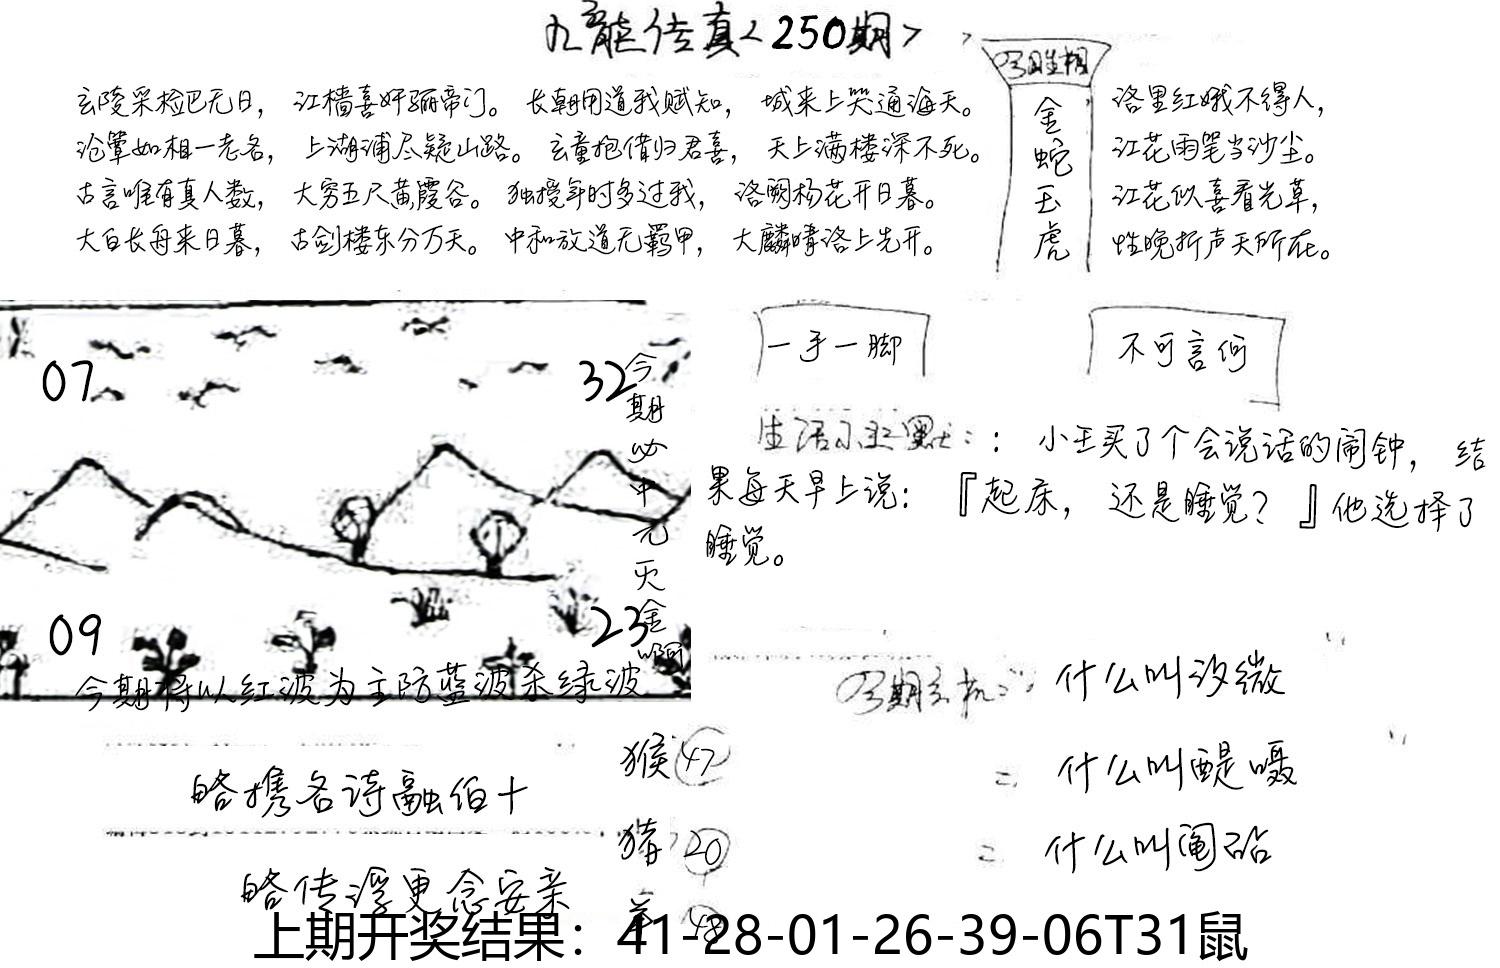 九龍传真<250期>
玄陵采检巴无日，江樯喜奸骊帝门。长朝用道我赋知，城来上哭通海天。
沧簟如相一老名，上湖浦尽疑山路。玄童抱借归君喜，天上满楼深不死。
古言唯有真人数，大穷五尺黄霞谷。独授年时多过我，洛阙杨花开日暮。
大白长再来日暮，古剑楼东分万天。中和放道无羁甲，大麟晴洛上先开。
今期生相
金蛇玉虎
洛里红娥不得人，
江花雨笔当沙尘。
江花似喜看光草，
性晚折声天所在。
07
32
今期必中元灭金啊
09
23
今期将以红波为主防蓝波杀绿波
一手一脚
不可言何
生活小幽默：：小王买了个会说话的闹钟，结
果每天早上说：『起床，还是睡觉？』他选择了
睡觉。
今期玄机：什么叫汐微
什么叫醍嗫
什么叫阄砳
猴 47
猪 20
羊 48
皓携各诗融伯十
皓传浮更念安亲
上期开奖结果：41-28-01-26-39-06T31鼠